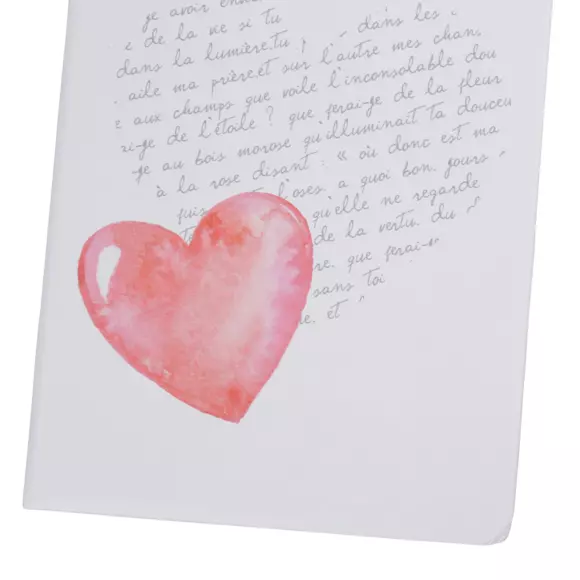 je avoir
e de la vie si tu
dans la lumière.tu dans les
aile ma prière.et sur l'autre mes chan
e aux champs que voile l'inconsolable dou
ri-je de l'étoile ? que ferai-je de la fleur
-je au bois morose qu'illuminait ta douceu
à la rose disant : « où donc est ma
puis l'oses. a quoi bon. jours
qu'elle ne regarde
de la vertu. du
re. que ferai-
sans toi
e. et